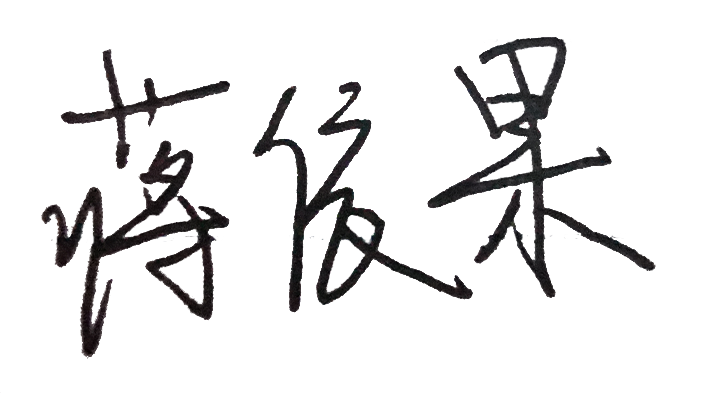 蒋俊果